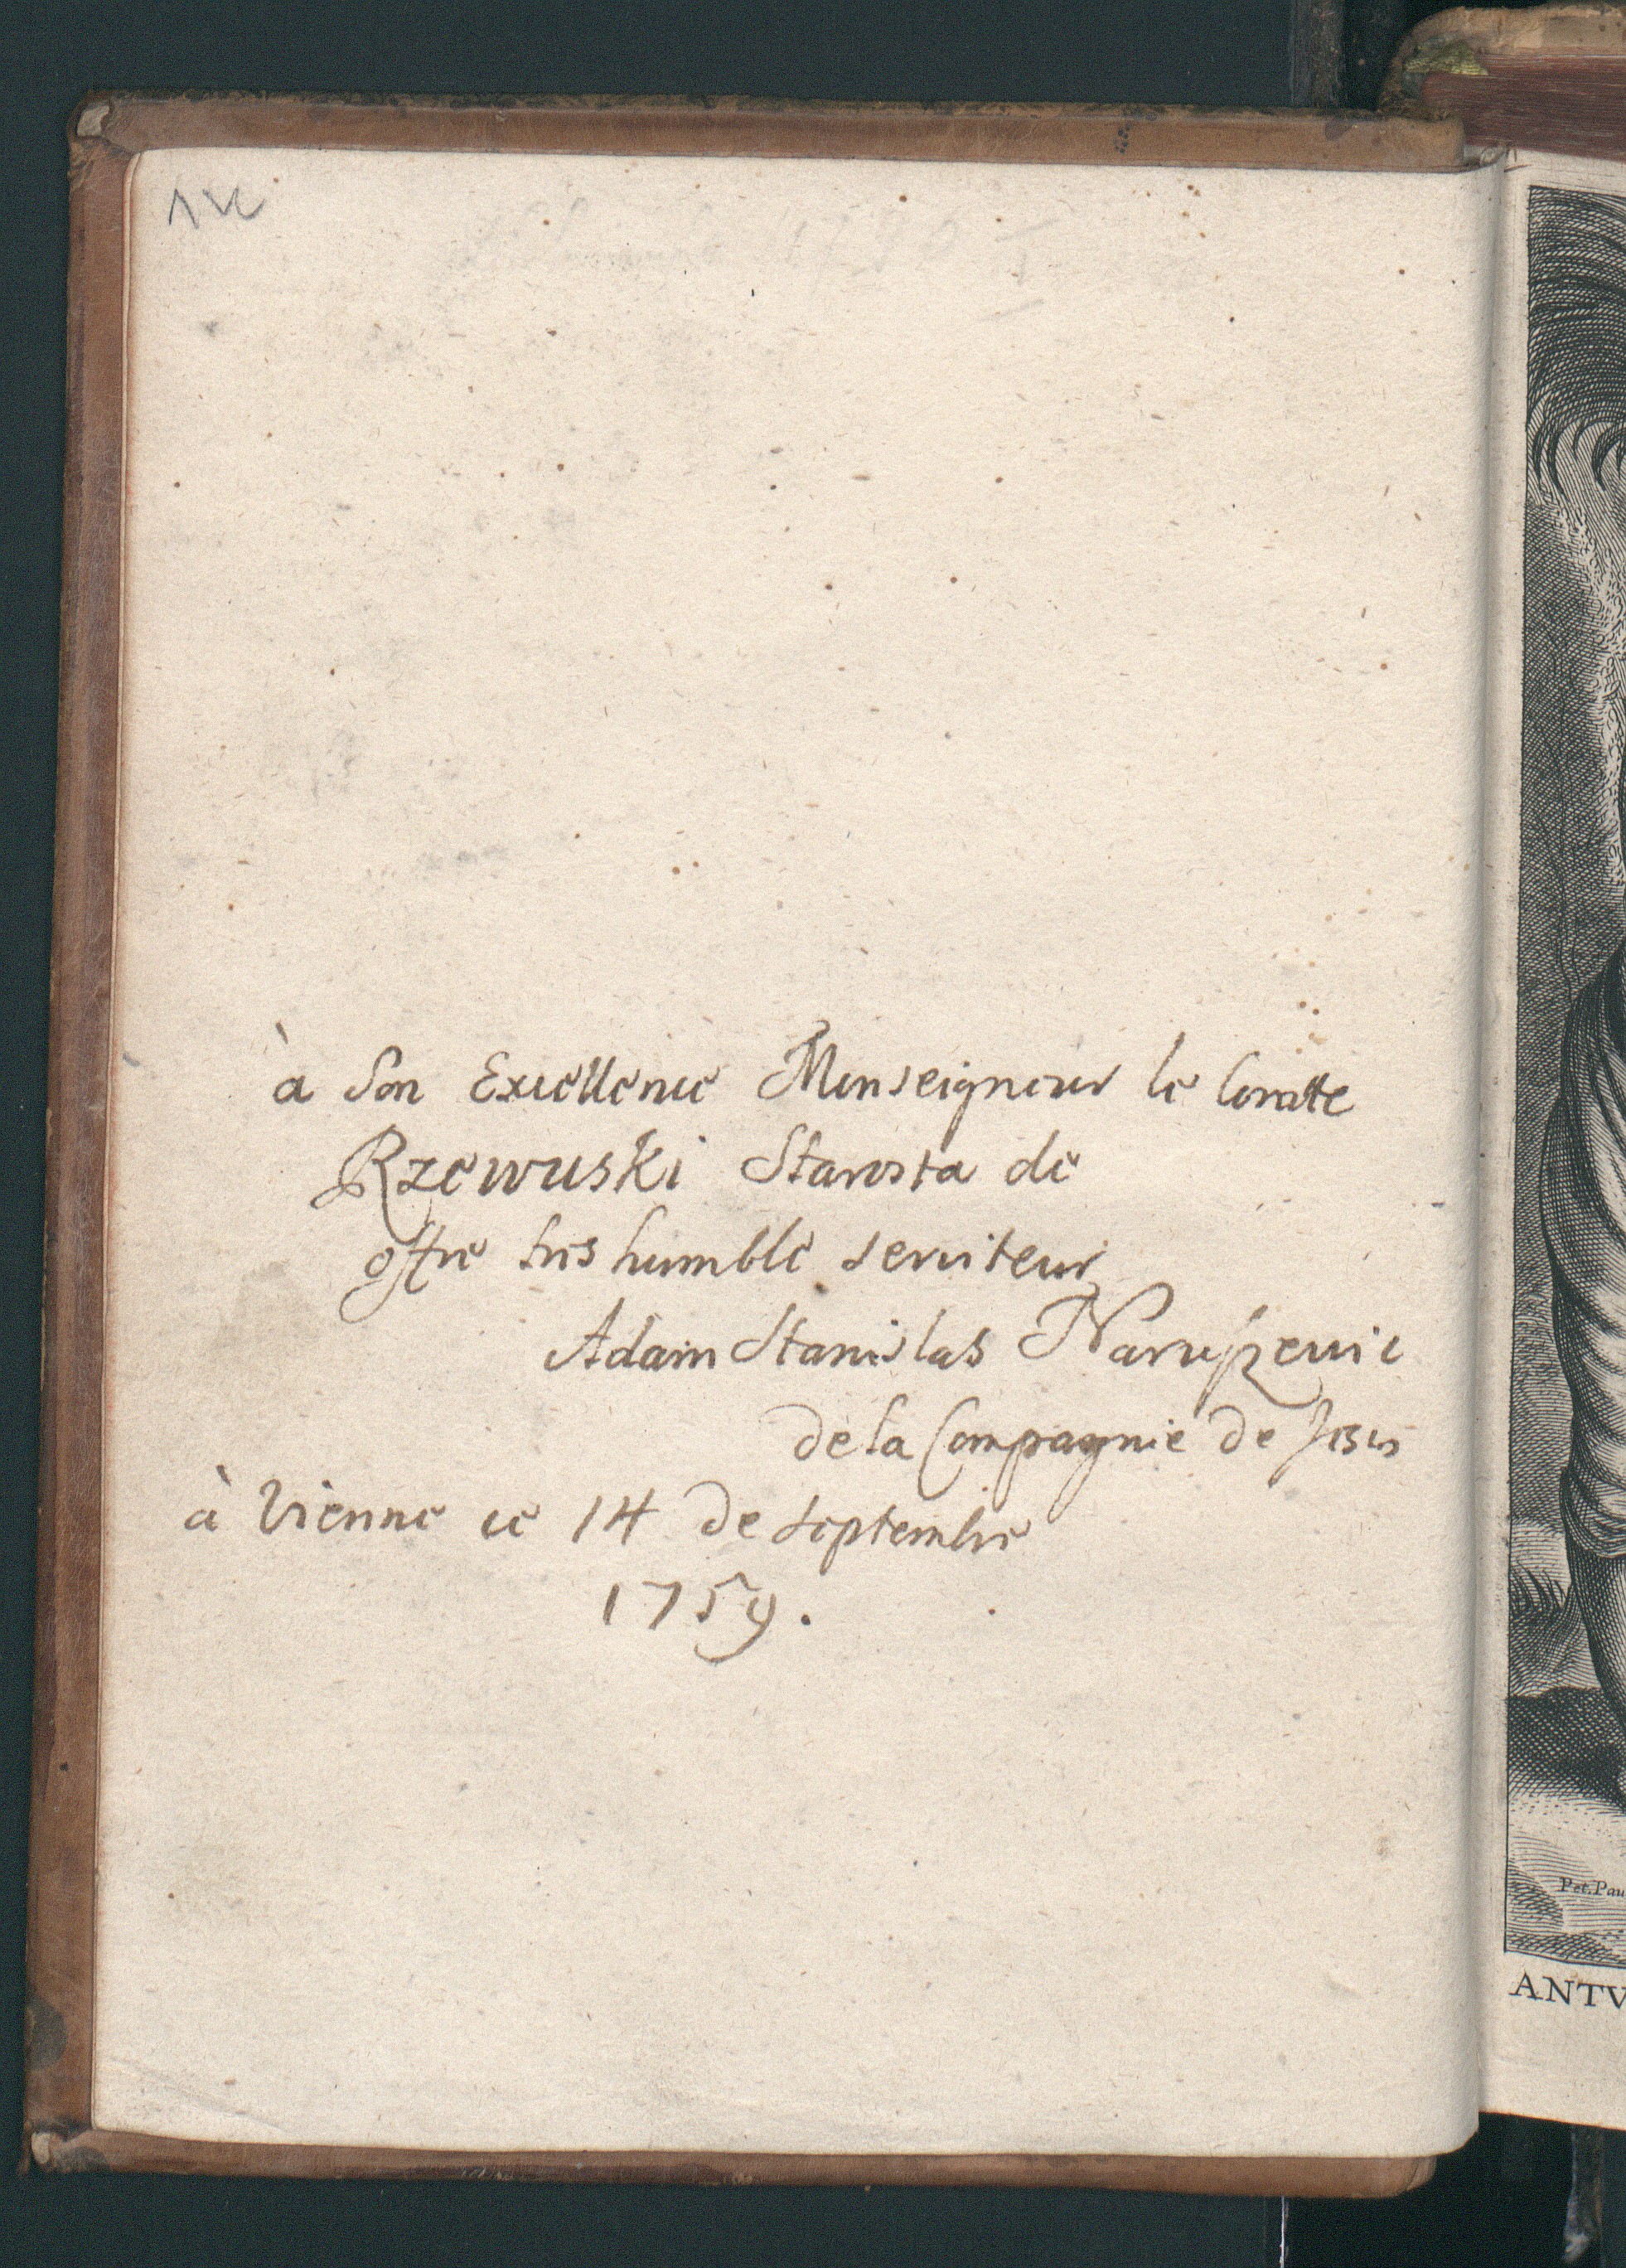 à Son Excellence Monseigneur le Comte
Rzewuski Starosta de
offre tres humble serviteur
Adam Stanislas Naruszewic
de la Compagnie de Jesus
à Vienne ce 14 de Septembre
1759.
Pet. Pau
ANTV